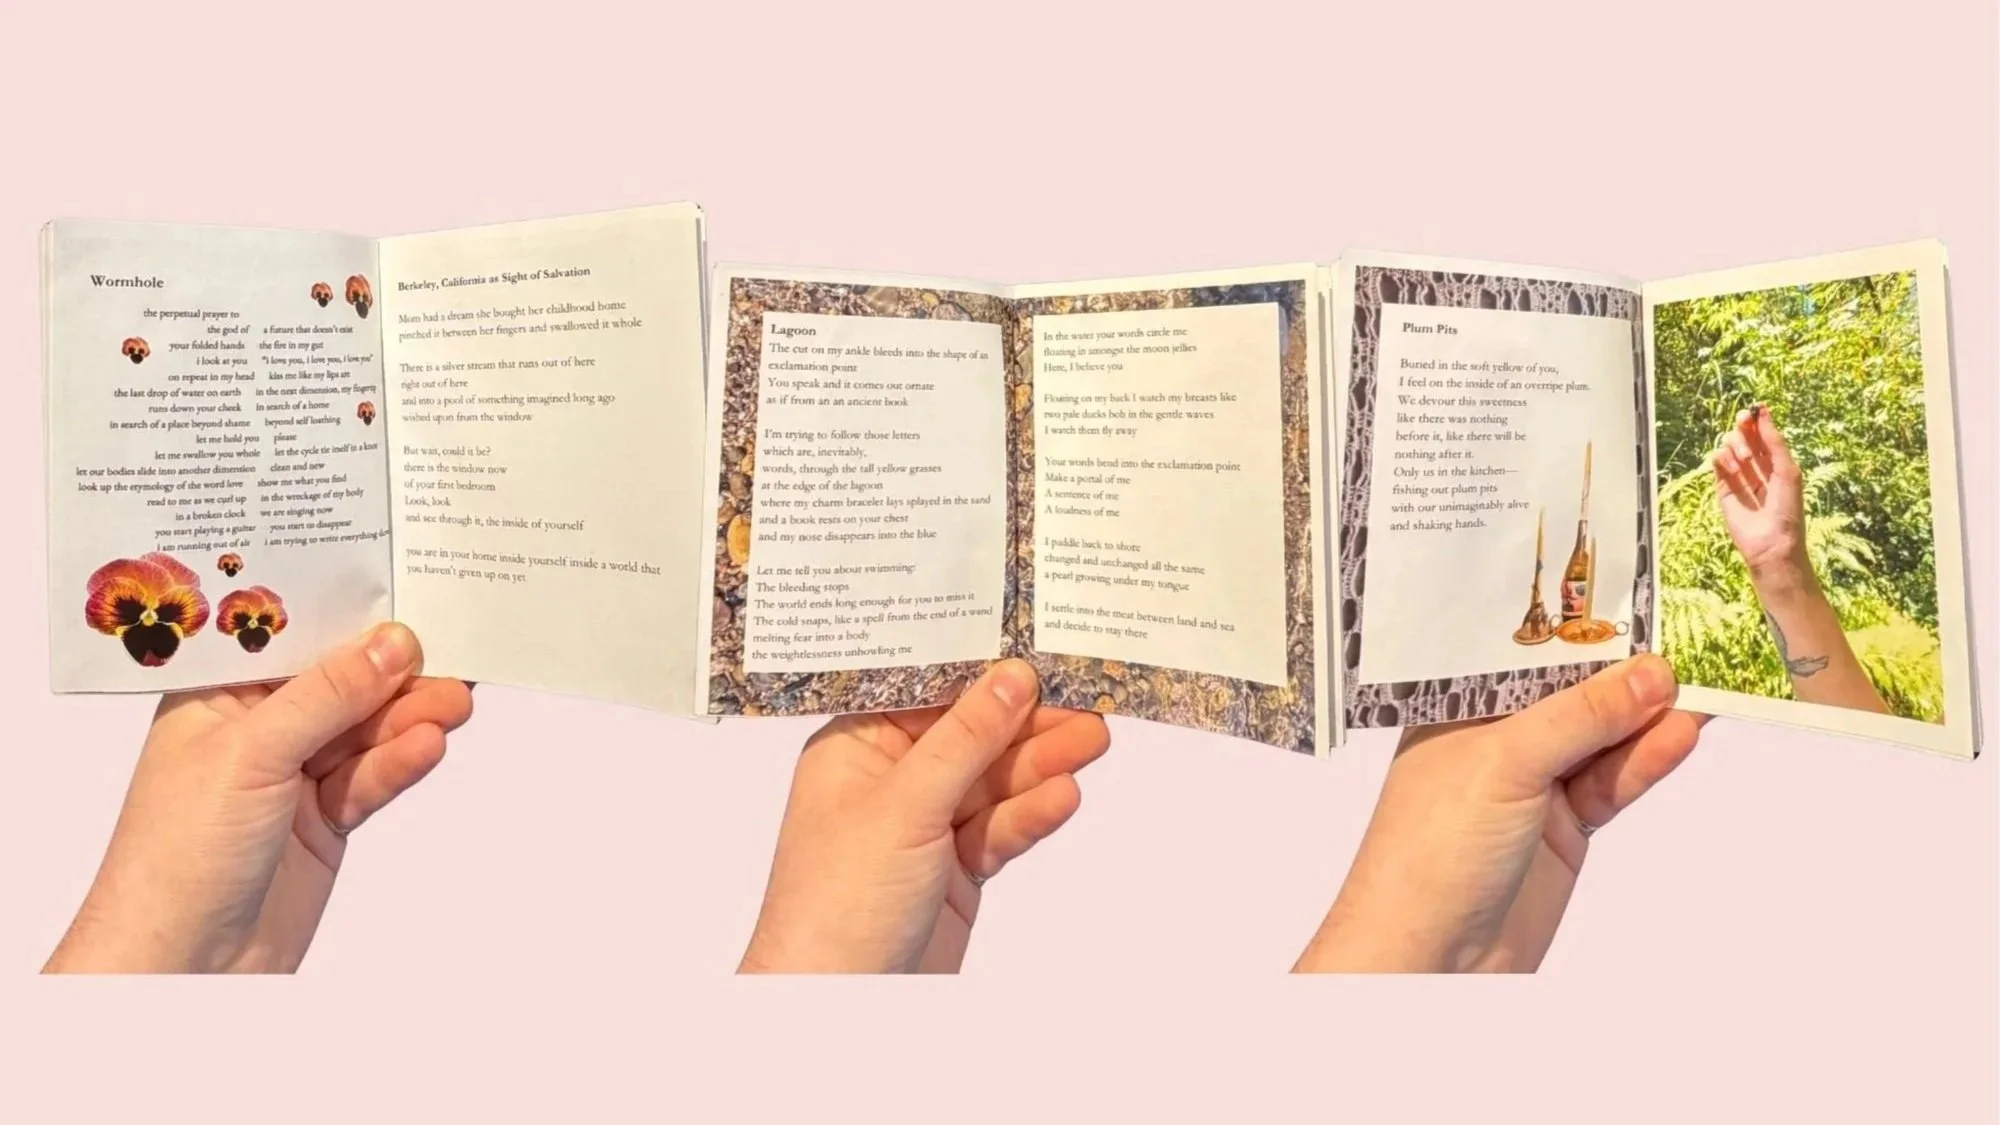 Wormhole
the perpetual prayer to
the god of    a future that doesn't exist
your folded hands    the fire in my gut
i look at you    "i love you, i love you, i love you"
on repeat in my head    kiss me like my lips are
the last drop of water on earth    in the next dimension, my fingertip
runs down your cheek    in search of a home
in search of a place beyond shame    beyond self loathing
let me hold you    please
let me swallow you whole    let the cycle tie itself in a knot
let our bodies slide into another dimension    clean and new
look up the etymology of the word love    show me what you find
read to me as we curl up    in the wreckage of my body
in a broken clock    we are singing now
you start playing a guitar    you start to disappear
i am running out of air    i am trying to write everything
Berkeley, California as Sight of Salvation
Mom had a dream she bought her childhood home
pinched it between her fingers and swallowed it whole
There is a silver stream that runs out of here
right out of here
and into a pool of something imagined long ago
wished upon from the window
But wait, could it be?
there is the window now
of your first bedroom
Look, look
and see through it, the inside of yourself
you are in your home inside yourself inside a world that
you haven't given up on yet
Lagoon
The cut on my ankle bleeds into the shape of an
exclamation point
You speak and it comes out ornate
as if from an an ancient book
I'm trying to follow those letters
which are, inevitably,
words, through the tall yellow grasses
at the edge of the lagoon
where my charm bracelet lays splayed in the sand
and a book rests on your chest
and my nose disappears into the blue
Let me tell you about swimming:
The bleeding stops
The world ends long enough for you to miss it
The cold snaps, like a spell from the end of a wand
melting fear into a body
the weightlessness unhowling me
In the water your words circle me
floating in amongst the moon jellies
Here, I believe you
Floating on my back I watch my breasts like
two pale ducks bob in the gentle waves
I watch them fly away
Your words bend into the exclamation point
Make a portal of me
A sentence of me
A loudness of me
I paddle back to shore
changed and unchanged all the same
a pearl growing under my tongue
I settle into the meat between land and sea
and decide to stay there
Plum Pits
Buried in the soft yellow of you,
I feel on the inside of an overripe plum.
We devour this sweetness
like there was nothing
before it, like there will be
nothing after it.
Only us in the kitchen—
fishing out plum pits
with our unimaginably alive
and shaking hands.